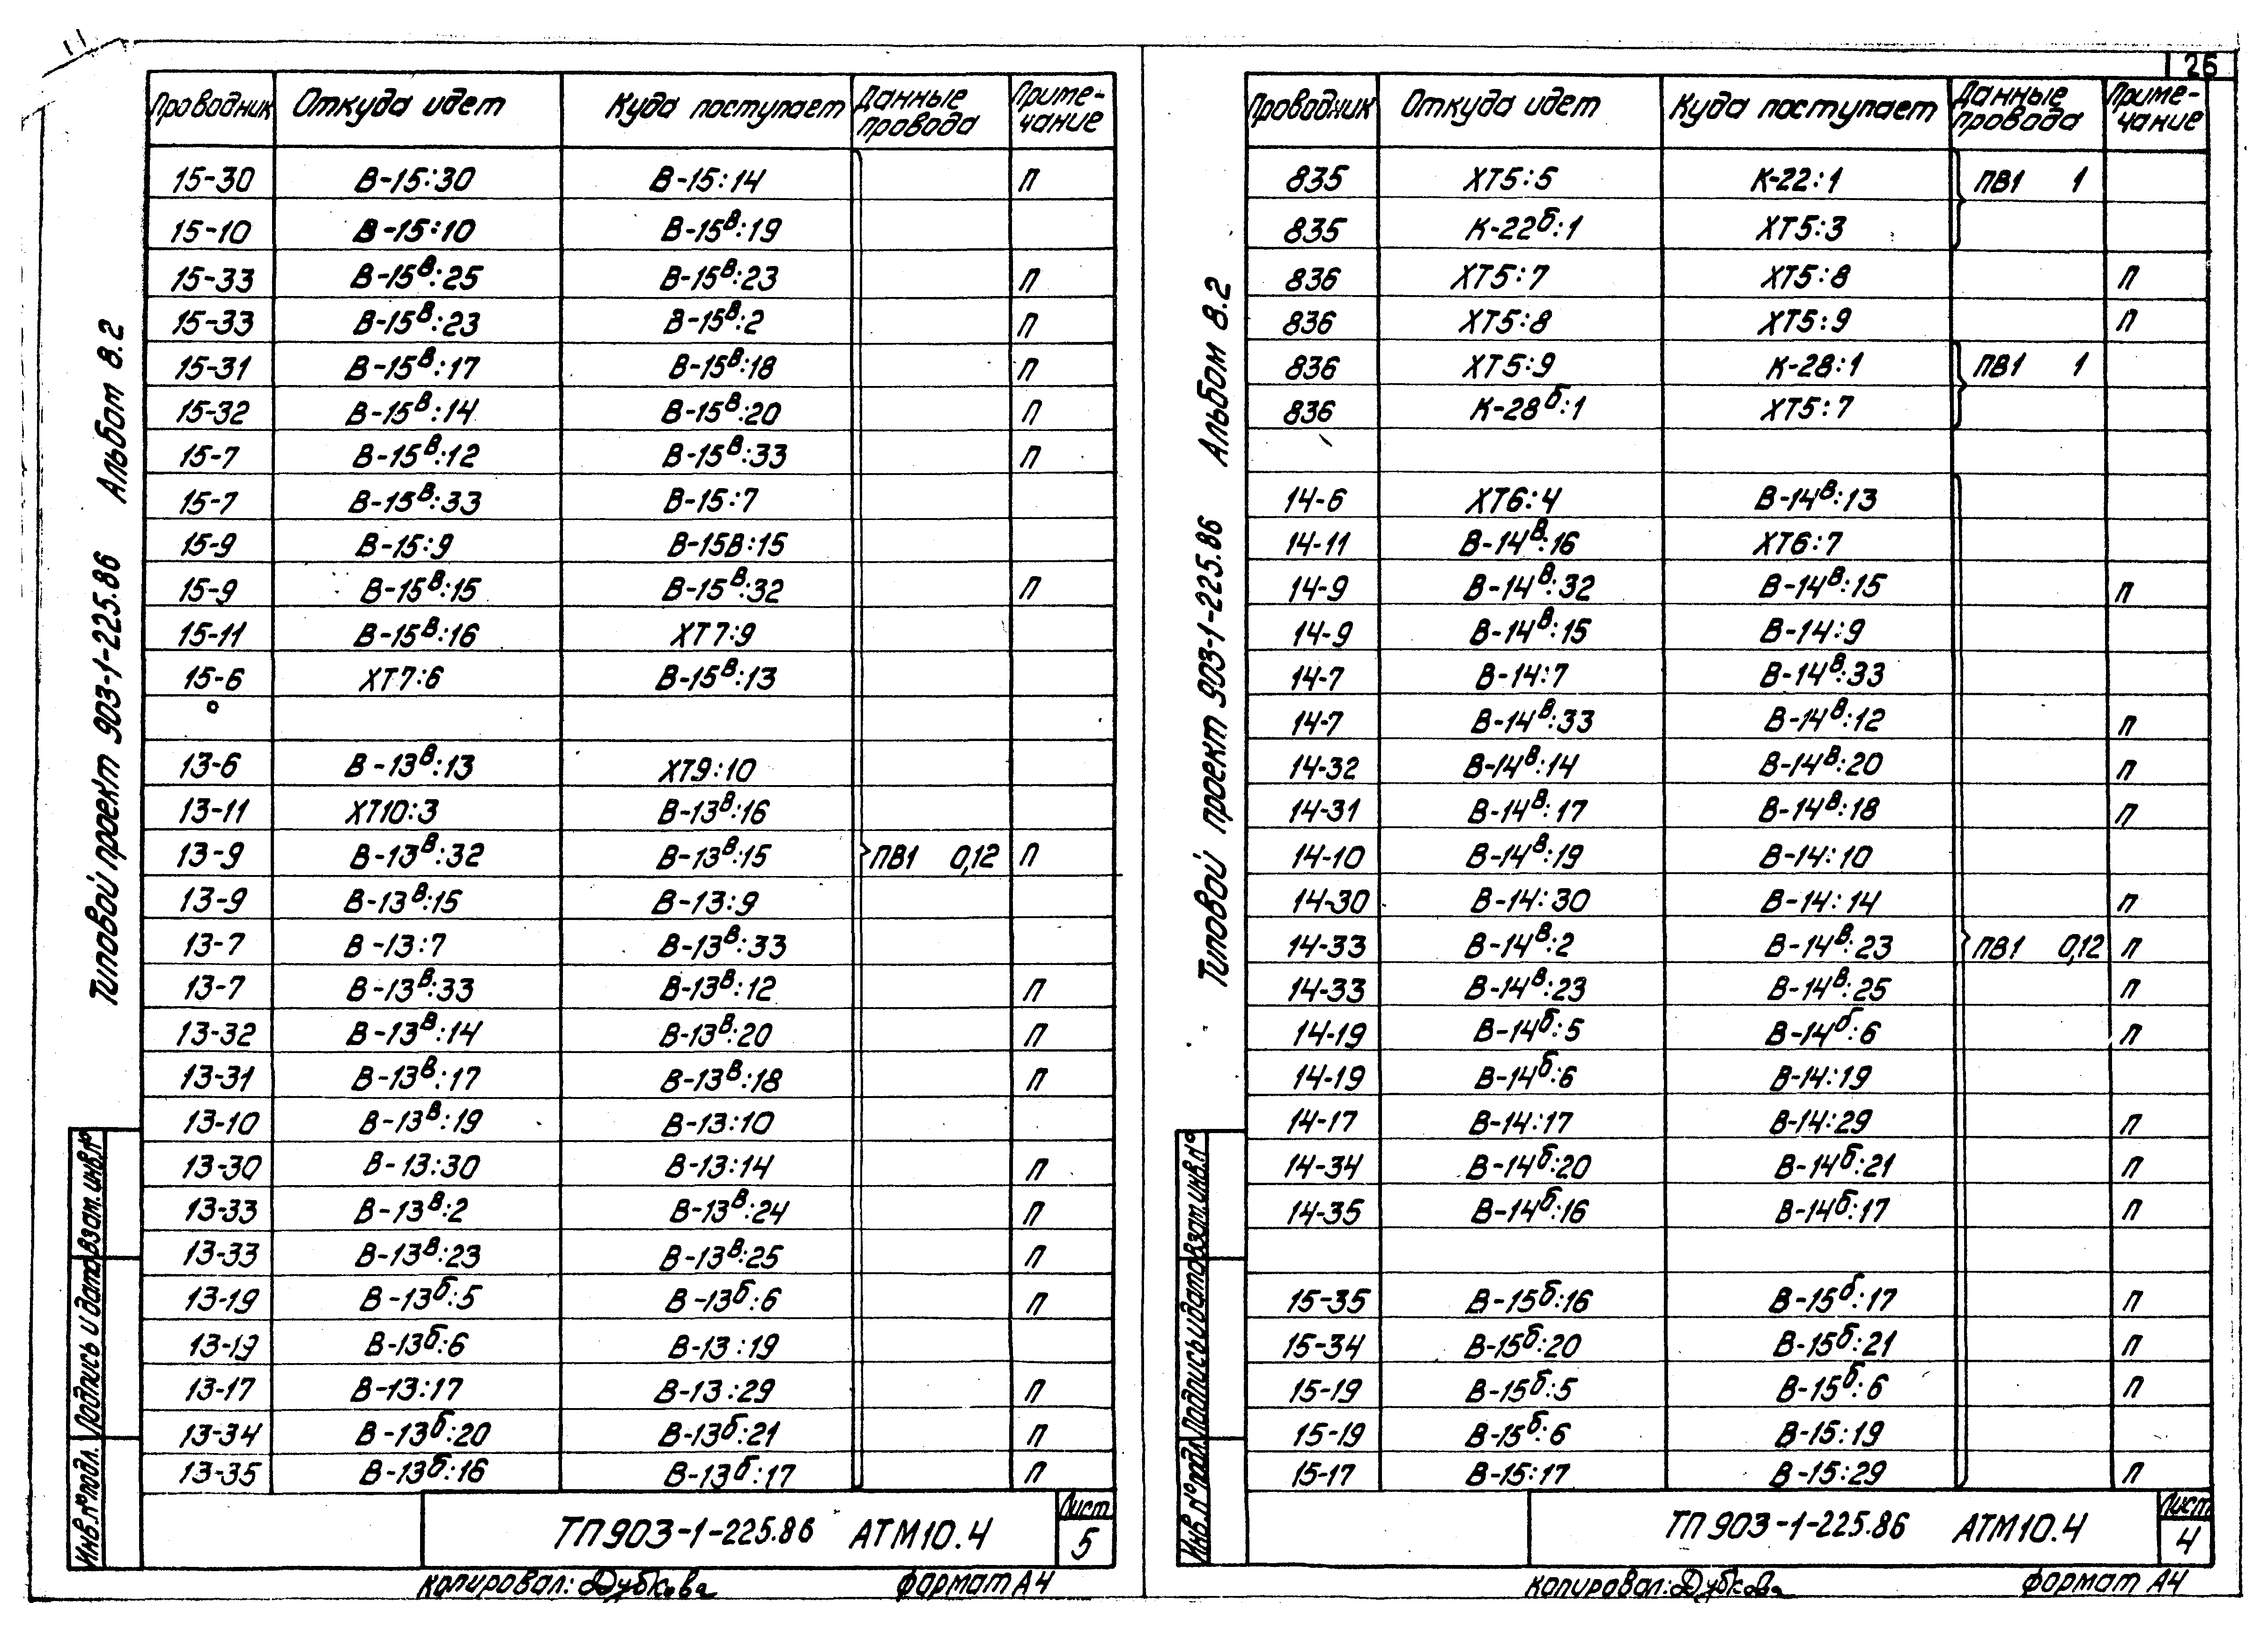 26
Проводник Откуда идет Куда поступает Данные провода Примечание
15-30 В-15:30 В-15:14 П
15-10 В-15:10 В-15ᴮ:19
15-33 В-15ᴮ:25 В-15ᴮ:23 П
15-33 В-15ᴮ:23 В-15ᴮ:2 П
15-31 В-15ᴮ:17 В-15ᴮ:18 П
15-32 В-15ᴮ:14 В-15ᴮ:20 П
15-7 В-15ᴮ:12 В-15ᴮ:33 П
15-7 В-15ᴮ:33 В-15:7
15-9 В-15:9 В-15В:15
15-9 В-15ᴮ:15 В-15ᴮ:32 П
15-11 В-15ᴮ:16 ХТ7:9
15-6 ХТ7:6 В-15ᴮ:13
13-6 В-13ᴮ:13 ХТ9:10
13-11 ХТ10:3 В-13ᴮ:16
13-9 В-13ᴮ:32 В-13ᴮ:15 ПВ1 0,12 П
13-9 В-13ᴮ:15 В-13:9
13-7 В-13:7 В-13ᴮ:33
13-7 В-13ᴮ:33 В-13ᴮ:12 П
13-32 В-13ᴮ:14 В-13ᴮ:20 П
13-31 В-13ᴮ:17 В-13ᴮ:18 П
13-10 В-13ᴮ:19 В-13:10
13-30 В-13:30 В-13:14 П
13-33 В-13ᴮ:2 В-13ᴮ:24 П
13-33 В-13ᴮ:23 В-13ᴮ:25 П
13-19 В-13ᵟ:5 В-13ᵟ:6 П
13-19 В-13ᵟ:6 В-13:19
13-17 В-13:17 В-13:29 П
13-34 В-13ᵟ:20 В-13ᵟ:21 П
13-35 В-13ᵟ:16 В-13ᵟ:17 П
ТП903-1-225.86 АТМ10.4
Лист
5
Копировал: Дубкова Формат А4
Типовой проект 903-1-225.86 Альбом 8.2
Инв.№подл. Подпись и дата Взам.инв.№
Проводник Откуда идет Куда поступает Данные провода Примечание
835 ХТ5:5 К-22:1 ПВ1 1
835 К-22ᵟ:1 ХТ5:3
836 ХТ5:7 ХТ5:8 П
836 ХТ5:8 ХТ5:9 П
836 ХТ5:9 К-28:1 ПВ1 1
836 К-28ᵟ:1 ХТ5:7
14-6 ХТ6:4 В-14ᴮ:13
14-11 В-14ᴮ:16 ХТ6:7
14-9 В-14ᴮ:32 В-14ᴮ:15 П
14-9 В-14ᴮ:15 В-14:9
14-7 В-14:7 В-14ᴮ:33
14-7 В-14ᴮ:33 В-14ᴮ:12 П
14-32 В-14ᴮ:14 В-14ᴮ:20 П
14-31 В-14ᴮ:17 В-14ᴮ:18 П
14-10 В-14ᴮ:19 В-14:10
14-30 В-14:30 В-14:14 П
14-33 В-14ᴮ:2 В-14ᴮ:23 ПВ1 0,12 П
14-33 В-14ᴮ:23 В-14ᴮ:25 П
14-19 В-14ᵟ:5 В-14ᵟ:6 П
14-19 В-14ᵟ:6 В-14:19
14-17 В-14:17 В-14:29 П
14-34 В-14ᵟ:20 В-14ᵟ:21 П
14-35 В-14ᵟ:16 В-14ᵟ:17 П
15-35 В-15ᵟ:16 В-15ᵟ:17 П
15-34 В-15ᵟ:20 В-15ᵟ:21 П
15-19 В-15ᵟ:5 В-15ᵟ:6 П
15-19 В-15ᵟ:6 В-15:19
15-17 В-15:17 В-15:29 П
ТП903-1-225.86 АТМ10.4
Лист
4
Копировал: Дубкова Формат А4
Типовой проект 903-1-225.86 Альбом 8.2
Инв.№подл. Подпись и дата Взам.инв.№